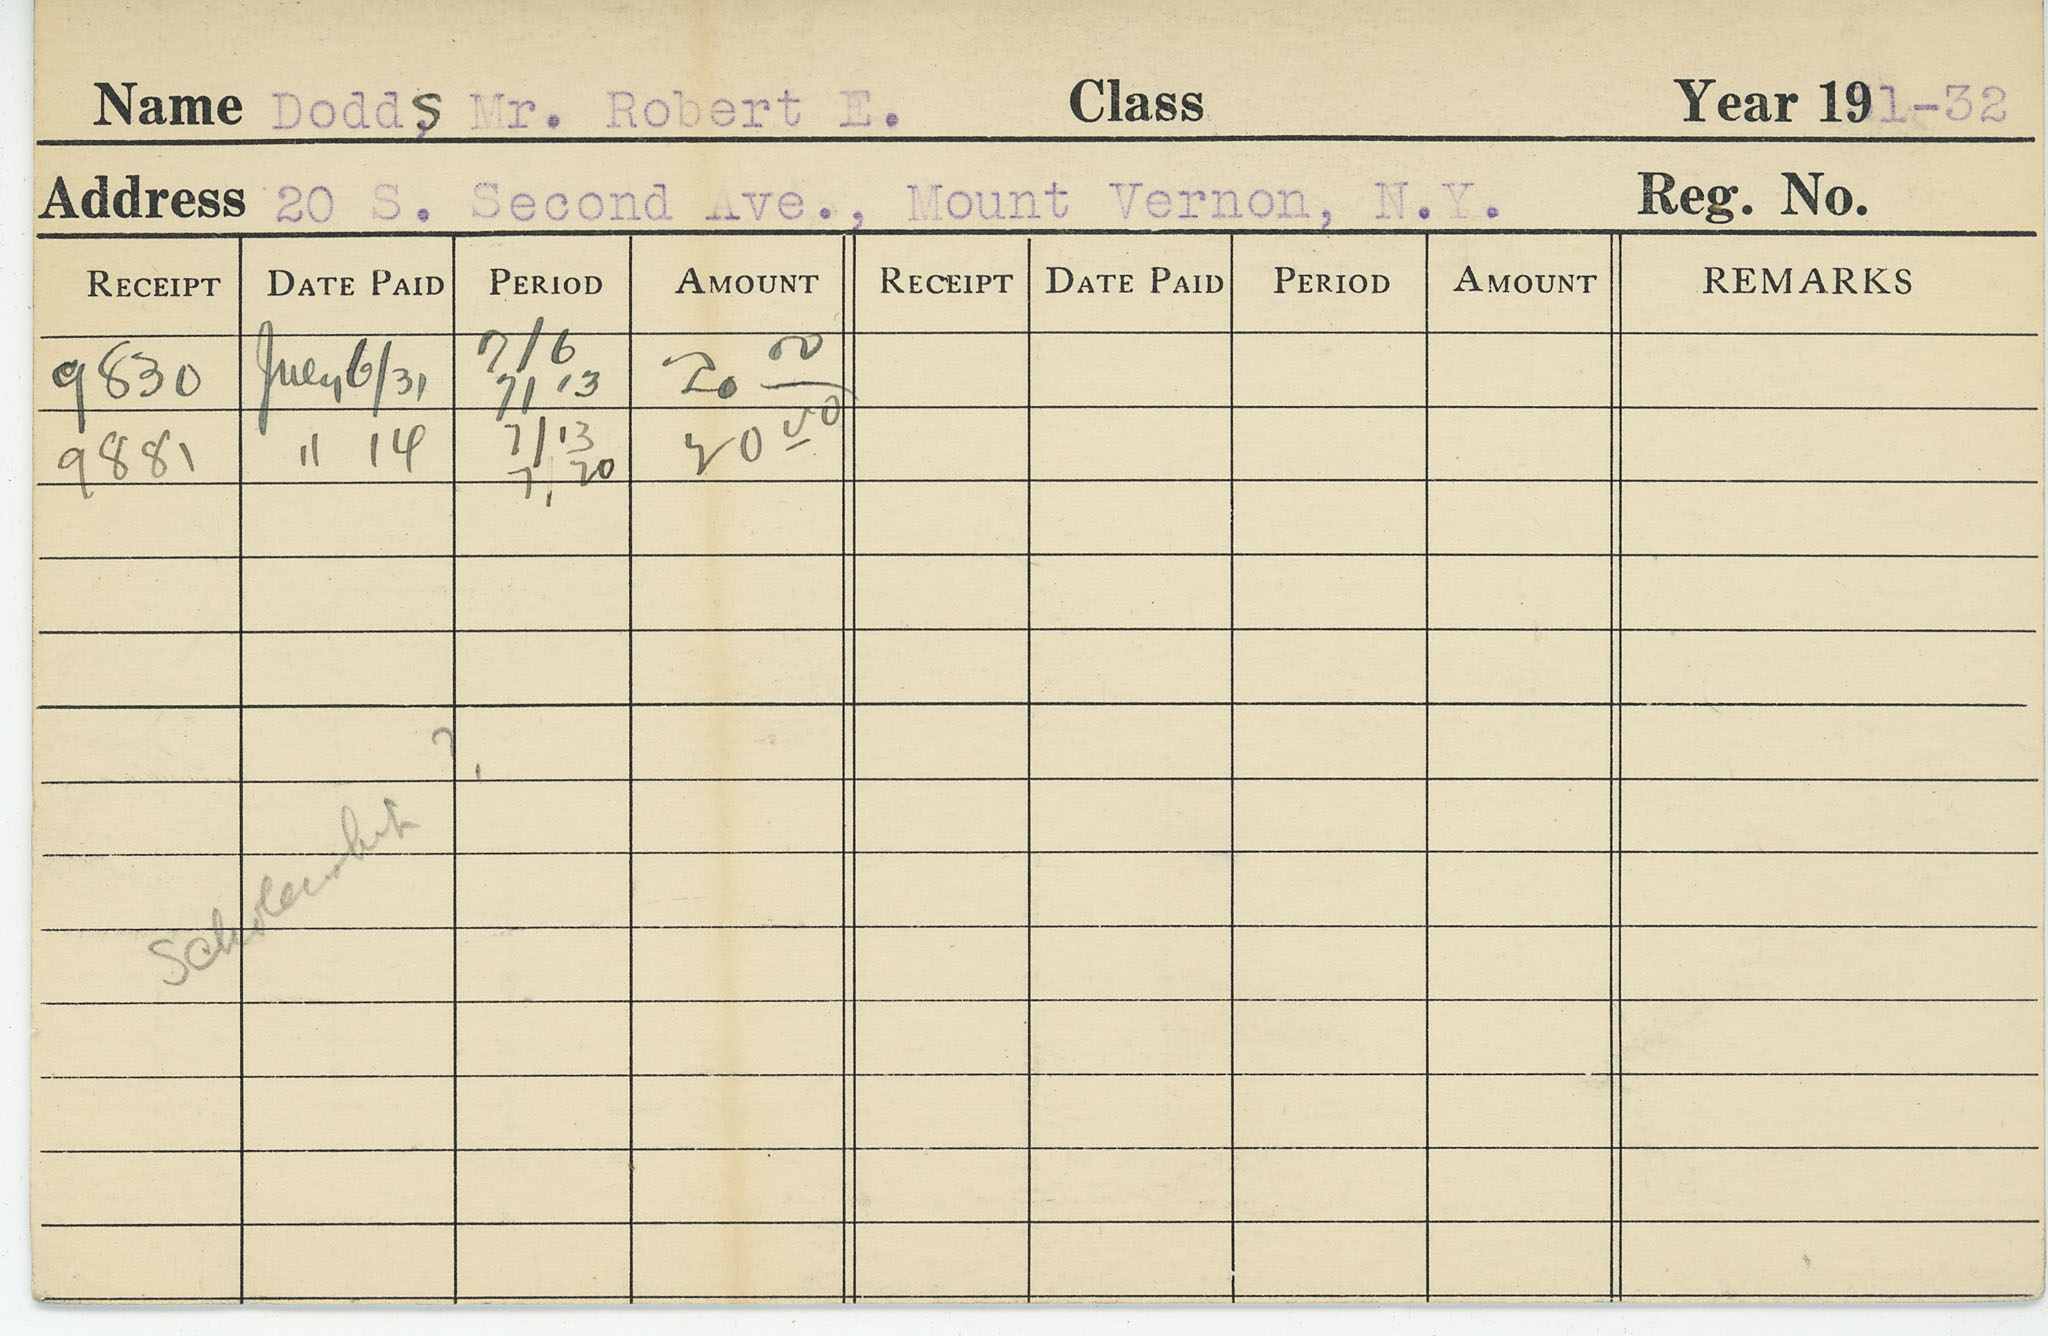 Name Dodds Mr. Robert E. Class Year 1931-32
Address 20 S. Second Ave., Mount Vernon, N.Y. Reg. No.
RECEIPT DATE PAID PERIOD AMOUNT RECEIPT DATE PAID PERIOD AMOUNT REMARKS
9830 July 6/31 7/6 7/13 20 00
9881 " 14 7/13 7/20 20 00
Scholarship ?